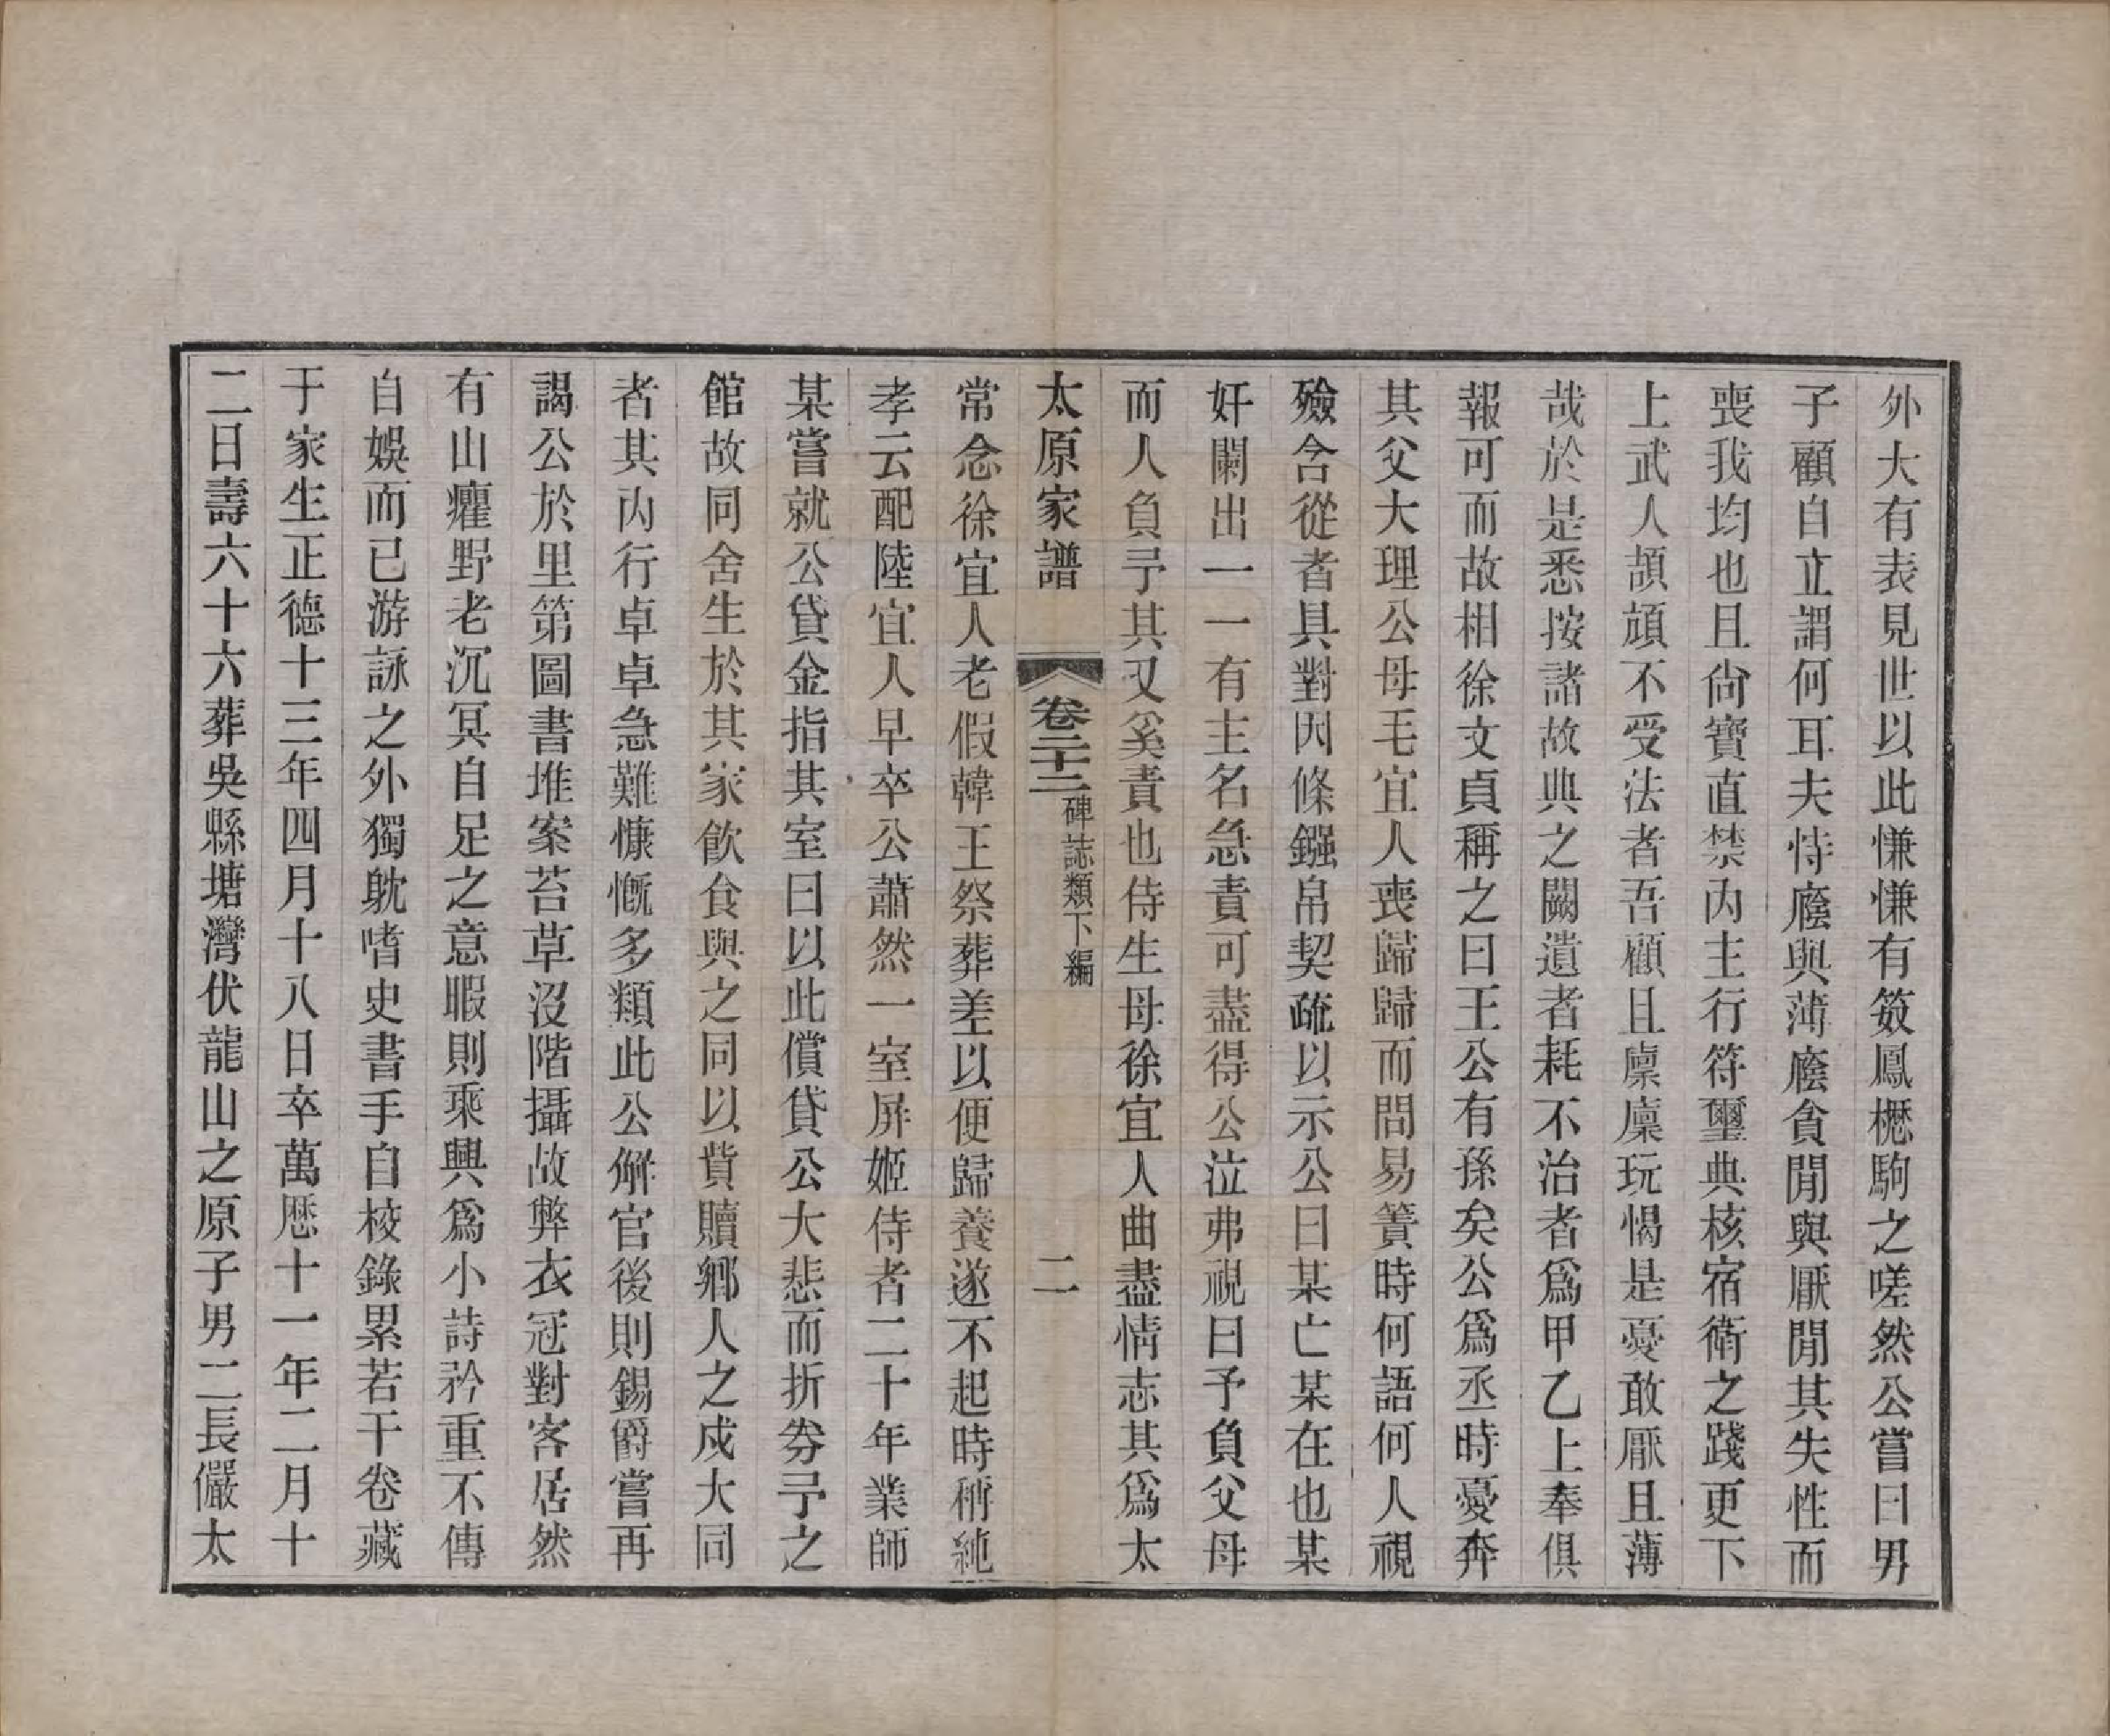 外大有表見世以此慊慊有笯鳳櫪駒之嗟然公嘗曰男
子顧自立謂何耳夫恃廕與薄廕貪閒與厭閒其失性而
喪我均也且尙寶直禁內主行符璽典核宿衛之踐更下
上武人頡頏不受法者吾顧且廩廩玩愒是憂敢厭且薄
哉於是悉按諸故典之闕遺者耗不治者爲甲乙上奉俱
報可而故相徐文貞稱之曰王公有孫矣公爲丞時憂奔
其父大理公母毛宜人喪歸歸而問易簀時何語何人視
殮含從者具對因條鏹帛契疏以示公曰某亡某在也某
奸闌出一一有主名急責可盡得公泣弗視曰予負父母
而人負予其又奚責也侍生母徐宜人曲盡情志其爲太
太原家譜 卷二十二 碑誌類下編 二
常念徐宜人老假韓王祭葬差以便歸養遂不起時稱純
孝云配陸宜人早卒公蕭然一室屏姬侍者二十年業師
某嘗就公貸金指其室曰以此償貸公大悲而折劵予之
館故同舍生於其家飮食與之同以貲贖鄕人之戍大同
者其內行卓卓急難慷慨多類此公解官後則錫爵嘗再
謁公於里第圖書堆案苔草沒階攝故弊衣冠對客居然
有山癯野老沉冥自足之意暇則乘興爲小詩矜重不傳
自娛而已游詠之外獨躭嗜史書手自校錄累若干卷藏
于家生正德十三年四月十八日卒萬歷十一年二月十
二日壽六十六葬吳縣塘灣伏龍山之原子男二長儼太